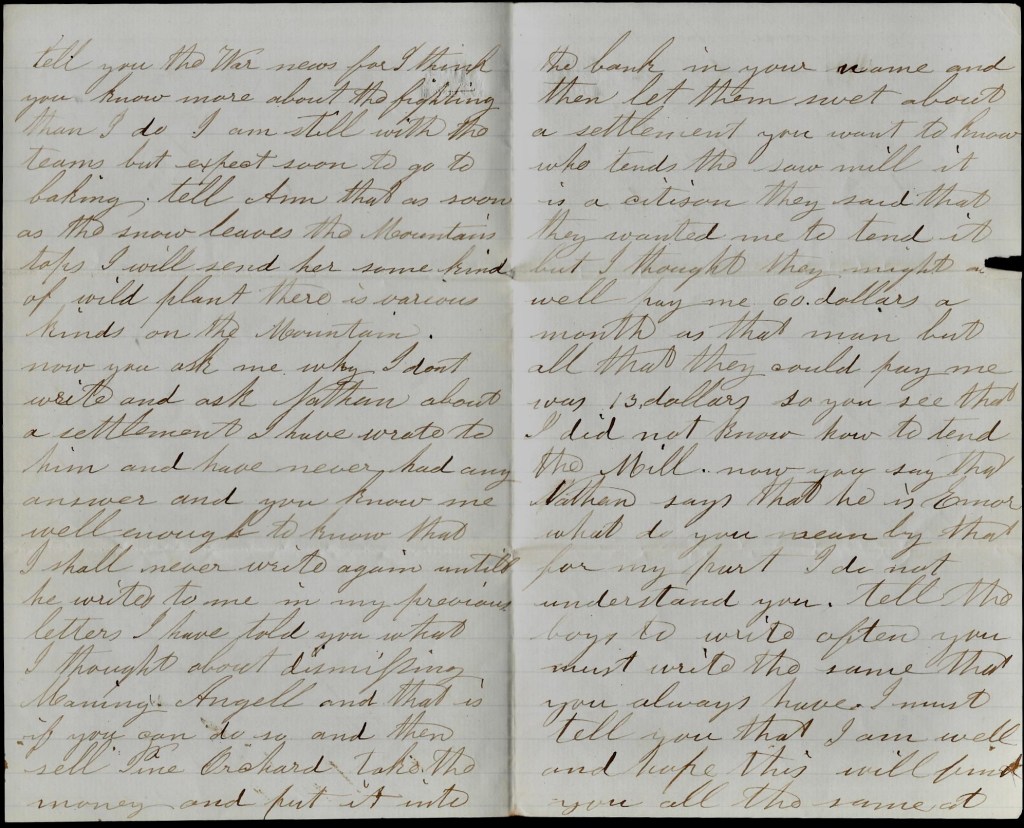 tell you the War news for I think
you know more about the fighting
than I do I am still with the
teams but expect soon to go to
baking. tell Ann that as soon
as the snow leaves the Mountains
tops I will send her some kind
of wild plant there is various
kinds on the Mountain.
now you ask me why I dont
write and ask Nathan about
a settlement I have wrote to
him and have never had any
answer and you know me
well enough to know that
I shall never write again untill
he writes to me in my previous
letters I have told you what
I thought about dismissing
Maning. Angell and that is
if you can do so and then
sell Pine Orchard take the
money and put it into
the bank in your name and
then let them swet about
a settlement you want to know
who tends the saw mill it
is a citison they said that
they wanted me to tend it
but I thought they might a
well pay me 60. dollars a
month as that man but
all that they could pay me
was 13. dollars so you see that
I did not know how to tend
the Mill. now you say that
Nathan says that he is Emor
what do you mean by that
for my part I do not
understand you. tell the
boys to write often you
must write the same that
you always have. I must
tell you that I am well
and hope this will find
you all the same at